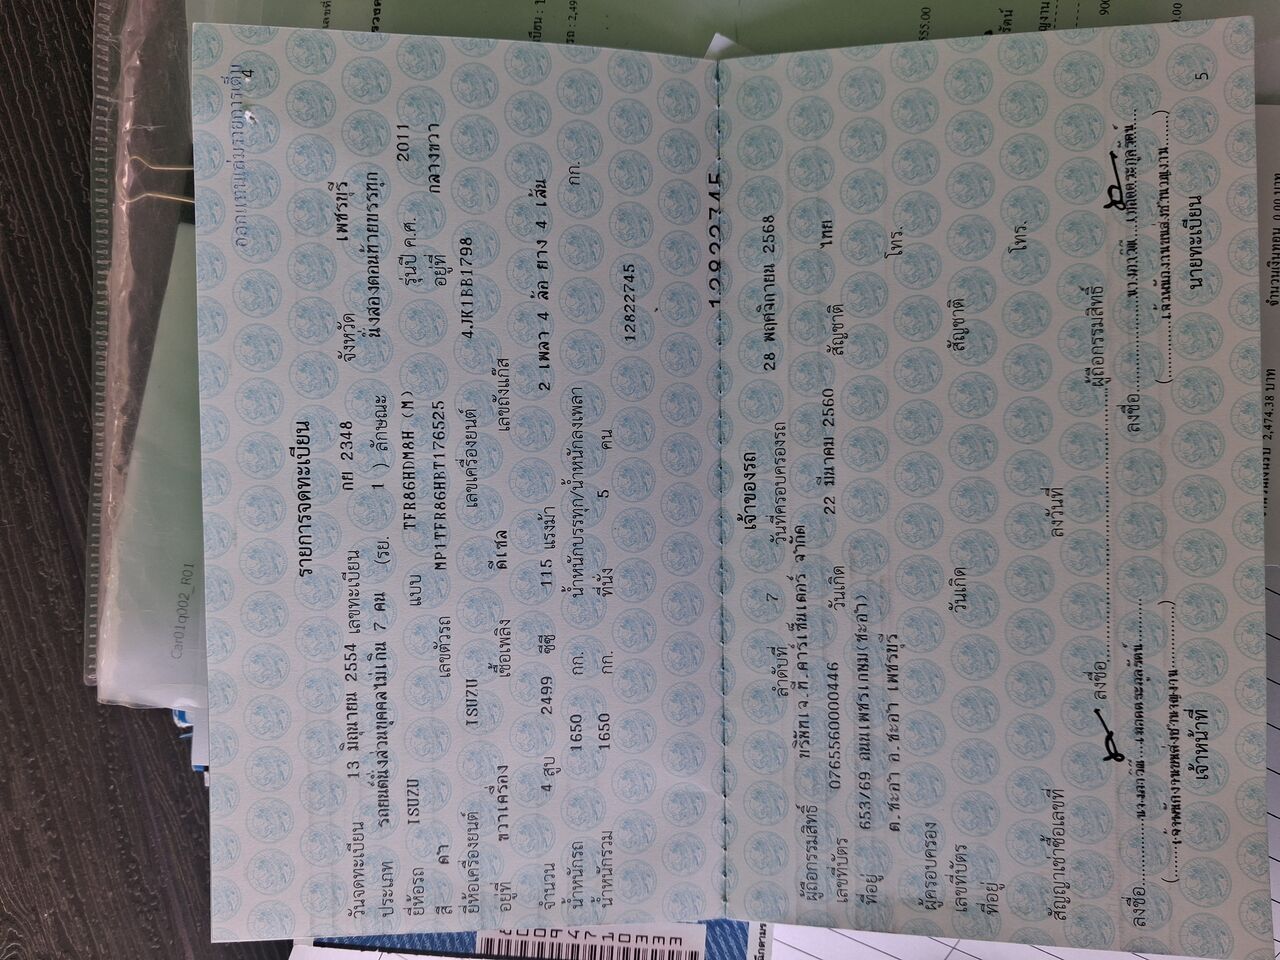 4
รายการจดทะเบียน
วันจดทะเบียน 13 มิถุนายน 2554 เลขทะเบียน กย 2348 จังหวัด เพชรบุรี
ประเภท รถยนต์นั่งส่วนบุคคลไม่เกิน 7 คน (รย. 1 ) ลักษณะ นั่งสองตอนท้ายบรรทุก
ยี่ห้อรถ ISUZU แบบ TFR86HDM8H (M) รุ่นปี ค.ศ. 2011
สี ดำ เลขตัวรถ MP1TFR86HBT176525 อยู่ที่ กลางขวา
ยี่ห้อเครื่องยนต์ ISUZU เลขเครื่องยนต์ 4JK1BB1798
อยู่ที่ ขวาเครื่อง เชื้อเพลิง ดีเซล เลขถังแก๊ส
จำนวน 4 สูบ 2499 ซีซี 115 แรงม้า 2 เพลา 4 ล้อ ยาง 4 เส้น
น้ำหนักรถ 1650 กก. น้ำหนักบรรทุก/น้ำหนักลงเพลา กก.
น้ำหนักรวม 1650 กก. ที่นั่ง 5 คน
12822745
12822745
เจ้าของรถ
ลำดับที่ 7 วันที่ครอบครองรถ 28 พฤศจิกายน 2568
ผู้ถือกรรมสิทธิ์ บริษัทเจ.ที.คาร์เซ็นเตอร์ จำกัด
เลขที่บัตร 0765560000446 วันเกิด 22 มีนาคม 2560 สัญชาติ ไทย
ที่อยู่ 653/69 ถนนเพชรเกษม(ชะอำ)
ต.ชะอำ อ.ชะอำ เพชรบุรี โทร.
ผู้ครอบครอง
เลขที่บัตร วันเกิด สัญชาติ
ที่อยู่ โทร.
สัญญาเช่าซื้อเลขที่ ลงวันที่
ลงชื่อ ผู้ถือกรรมสิทธิ์
ลงชื่อ ลงชื่อ
เจ้าหน้าที่ นายทะเบียน
5
Car01q002_R01
2,474.38 บาท